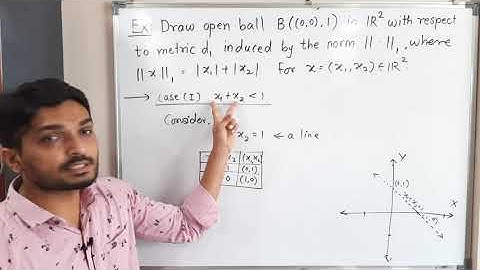 Ex: Draw open ball B((0,0),1) in ℝ² with respect
to metric d₁ induced by the norm ||·||₁, where
||x||₁ = |x₁|+|x₂| For x=(x₁,x₂)∈ℝ².
→ Case(I) x₁+x₂<1
Consider,
x₂=1 ← a line
x₂ (x₁,x₂)
1 (0,1)
0 (1,0)
Y
(0,1)
X